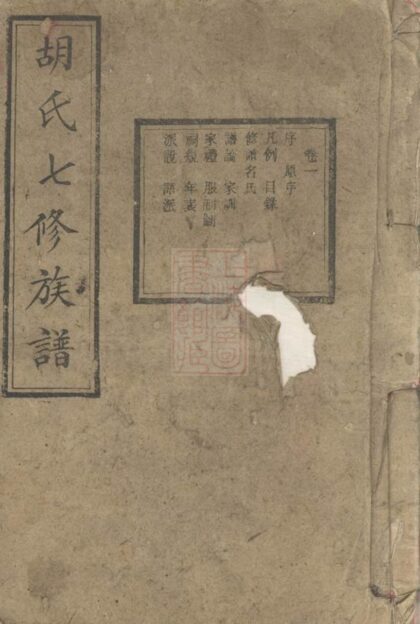 胡氏七修族譜
卷一
序 原序
凡例 目錄
修譜名氏
譜論 家訓
家禮 服制圖
年表
派說 源派